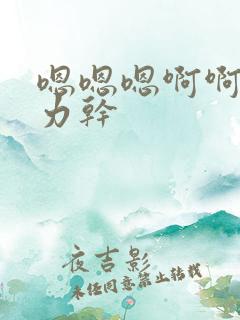 嗯嗯嗯啊啊
力幹
夜吉影
未经同意禁止转载